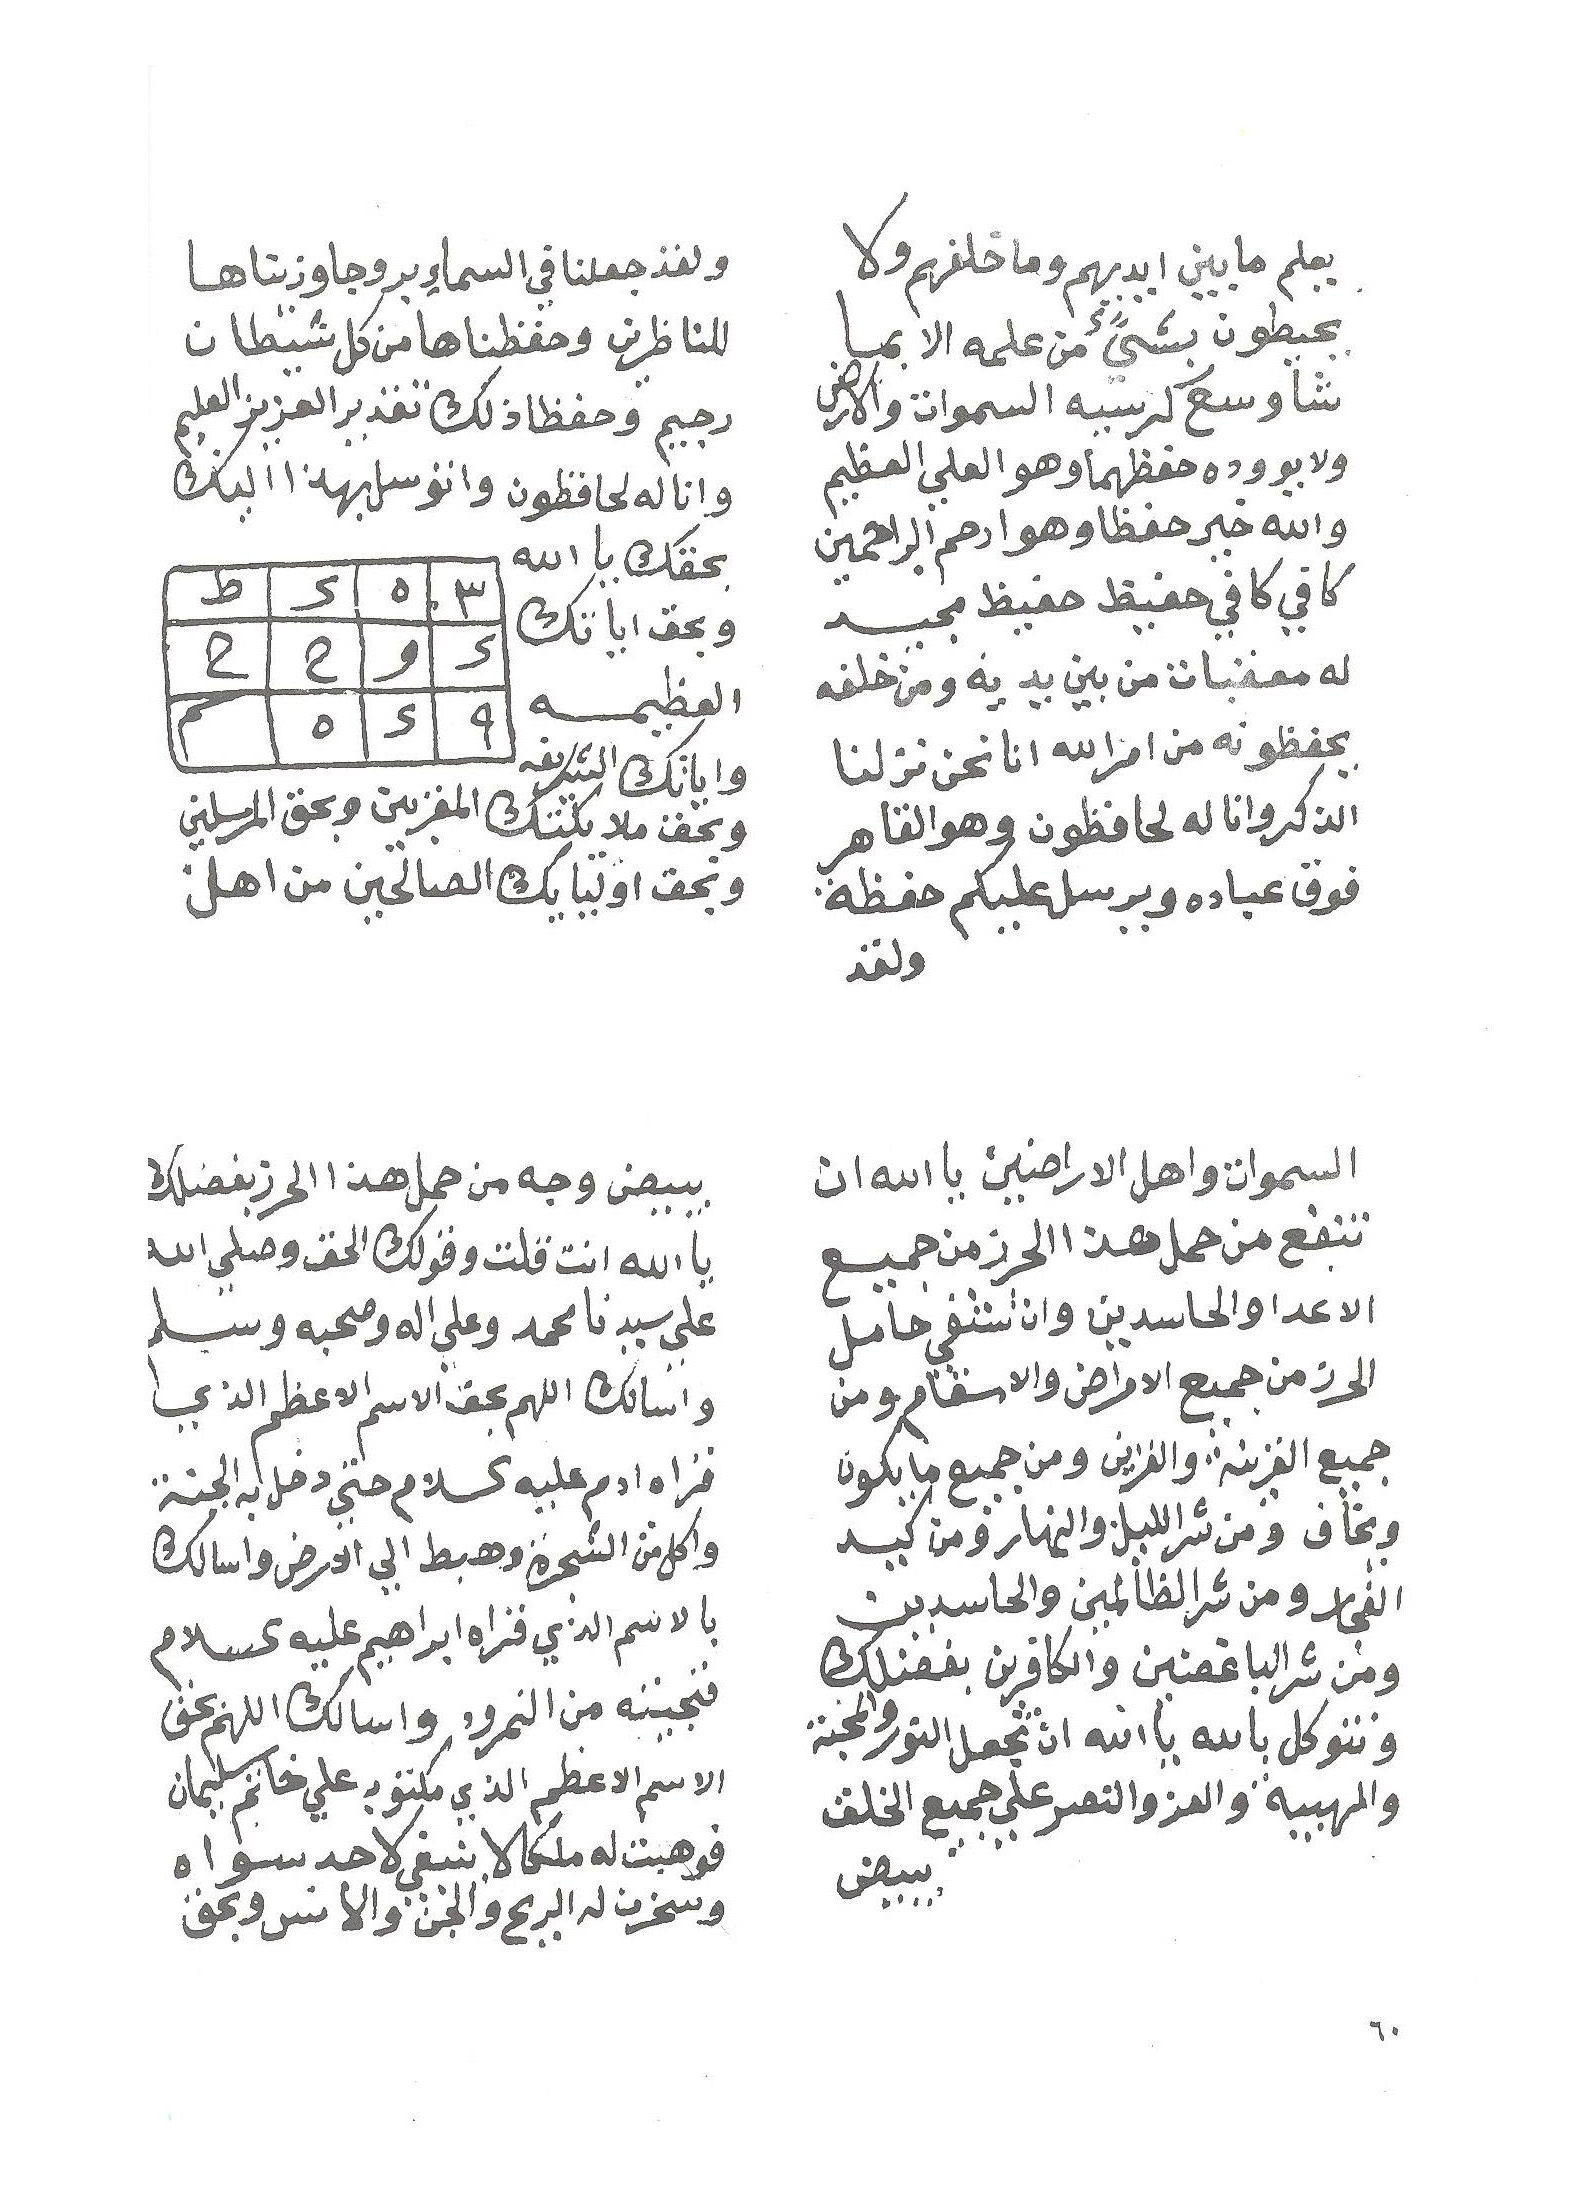 يعلم ما بين ايديهم وما خلفهم ولا
يحيطون بشيء من علمه الا بما
شا وسع كرسيه السموات والارض
ولا يووده حفظهما وهو العلي العظيم
والله خير حفظا وهو ارحم الراحمين
كافي كافي حفيظ حفيظ مجيد
له معقبات من بين يديه ومن خلفه
يحفظونه من امر الله انا نحن نزلنا
الذكر وانا له لحافظون وهو القاهر
فوق عباده ويرسل عليكم حفظة
ولقد
ولقد جعلنا في السماء بروجا وزيناها
للناظرين وحفظناها من كل شيطان
رجيم وحفظا ذلك تقدير العزيز العليم
وانا له لحافظون واتوسل بهذا اليك
بحقك يا الله
وبحق اياتك
العظيمه
واياتك الشريفه
٣ ه ط
و ح ح
٩ ه
وبحق ملايكتك المقربين وبحق المرسلين
وبحق اوليايك الصالحين من اهل
السموات واهل الاراضين يا الله ان
تنفع من حمل هذا الحرز من جميع
الاعدا والحاسدين وان تشفي حامل
الحرز من جميع الامراض والاسقام ومن
جميع القرينة والقراين ومن جميع ما يكون
ويخاف ومن شر الليل والنهار ومن كيد
ومن شر الظالمين والحاسدين
ومن شر الباغضين والكافرين بفضلك
ونتوكل بالله يا الله ان تجعل النور والمحبة
والمهيبة والعز والنصر علي جميع الخلق
يبيض
يبيض وجه من حمل هذا الحرز بفضلك
يا الله انت قلت وقولك الحق وصلي الله
علي سيدنا محمد وعلي اله وصحبه وسلم
واسالك اللهم بحق الاسم الاعظم الذي
قراه ادم عليه حتي دخل به الجنة
واكل من الشجرة وهبط الي الارض واسالك
بالاسم الذي قراه ابراهيم عليه
فنجيته من النمرود واسالك اللهم بحق
الاسم الاعظم الذي مكتوب علي خاتم سليمان
فوهبت له ملكا لا ينبغي لاحد سواه
وسخرت له الريح والجن والانس وبحق
٦٠